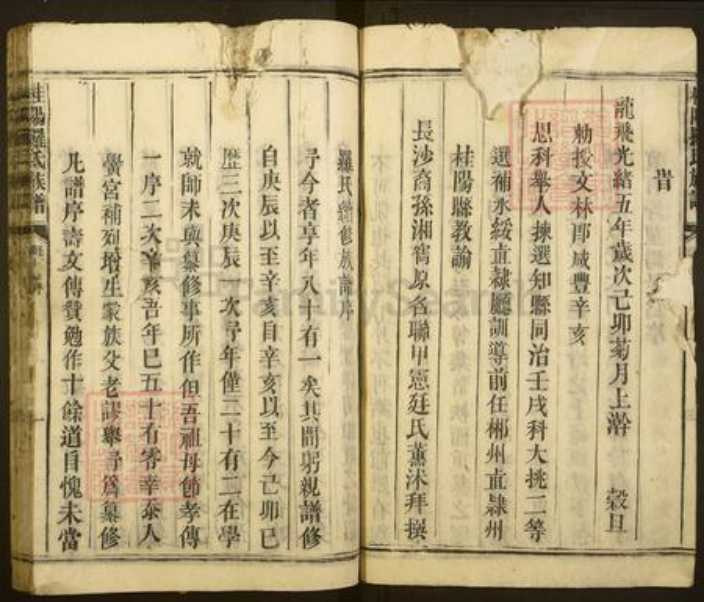 旹
龍飛光緒五年歲次己卯菊月上澣 穀旦
勅授文林郎咸豐辛亥
恩科舉人揀選知縣同治壬戌科大挑二等
選補永綏直隸廳訓導前任郴州直隸州
桂陽縣教諭
長沙裔孫湘賓原名聯甲憲廷氏薰沐拜撰
羅氏續修族譜序
予今者享年八十有一矣其間躬親譜修
自庚辰以至辛亥自辛亥以至今己卯已
歷三次庚辰一次予年僅二十有二在學
就師未與纂修事所作但吾祖母節孝傳
一序二次辛亥吾年已五十有零幸泰人
黌宮補列增生家族父老謬舉予為纂修
凡譜序壽文傳贊勉作十餘道自愧未當
桂陽羅氏族譜